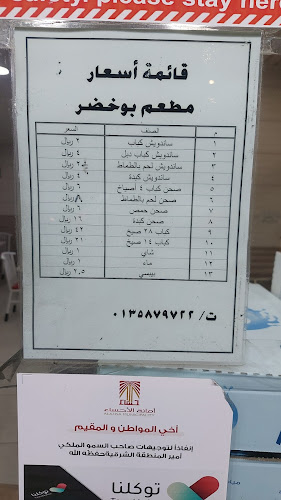 safety. please stay here
قائمة أسعار
مطعم بوخضر
م الصنف السعر
١ ساندويش كباب ٢ ريال
٢ ساندويش كباب دبل ٤ ريال
٣ ساندويش لحم بالطماط ريال
٤ ساندويش كبدة ٤ ريال
٥ صحن كباب ٤ أصياخ ٦ ريال
٦ صحن لحم بالطماط ٨ ريال
٧ صحن حمص ٦ ريال
٨ صحن كبدة ١٦ ريال
٩ كباب ٢٨ صيخ ٤٢ ريال
١٠ كباب ١٤ صيخ ٢١ ريال
١١ شاي ١ ريال
١٢ ماء ١ ريال
١٣ بيبسي ٢.٥ ريال
ت/ ٠١٣٥٨٧٩٧٢٢
أمانة الأحساء
أخي المواطن و المقيم
إنفاذاً لتوجيهات صاحب السمو الملكي
أمير المنطقة الشرقية حفظه الله
توكلنا
توكلنا